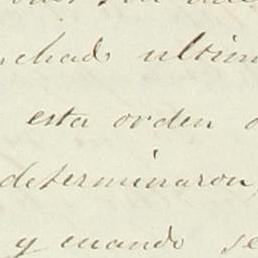 ultim
esta orden
determinaron,
y cuando se